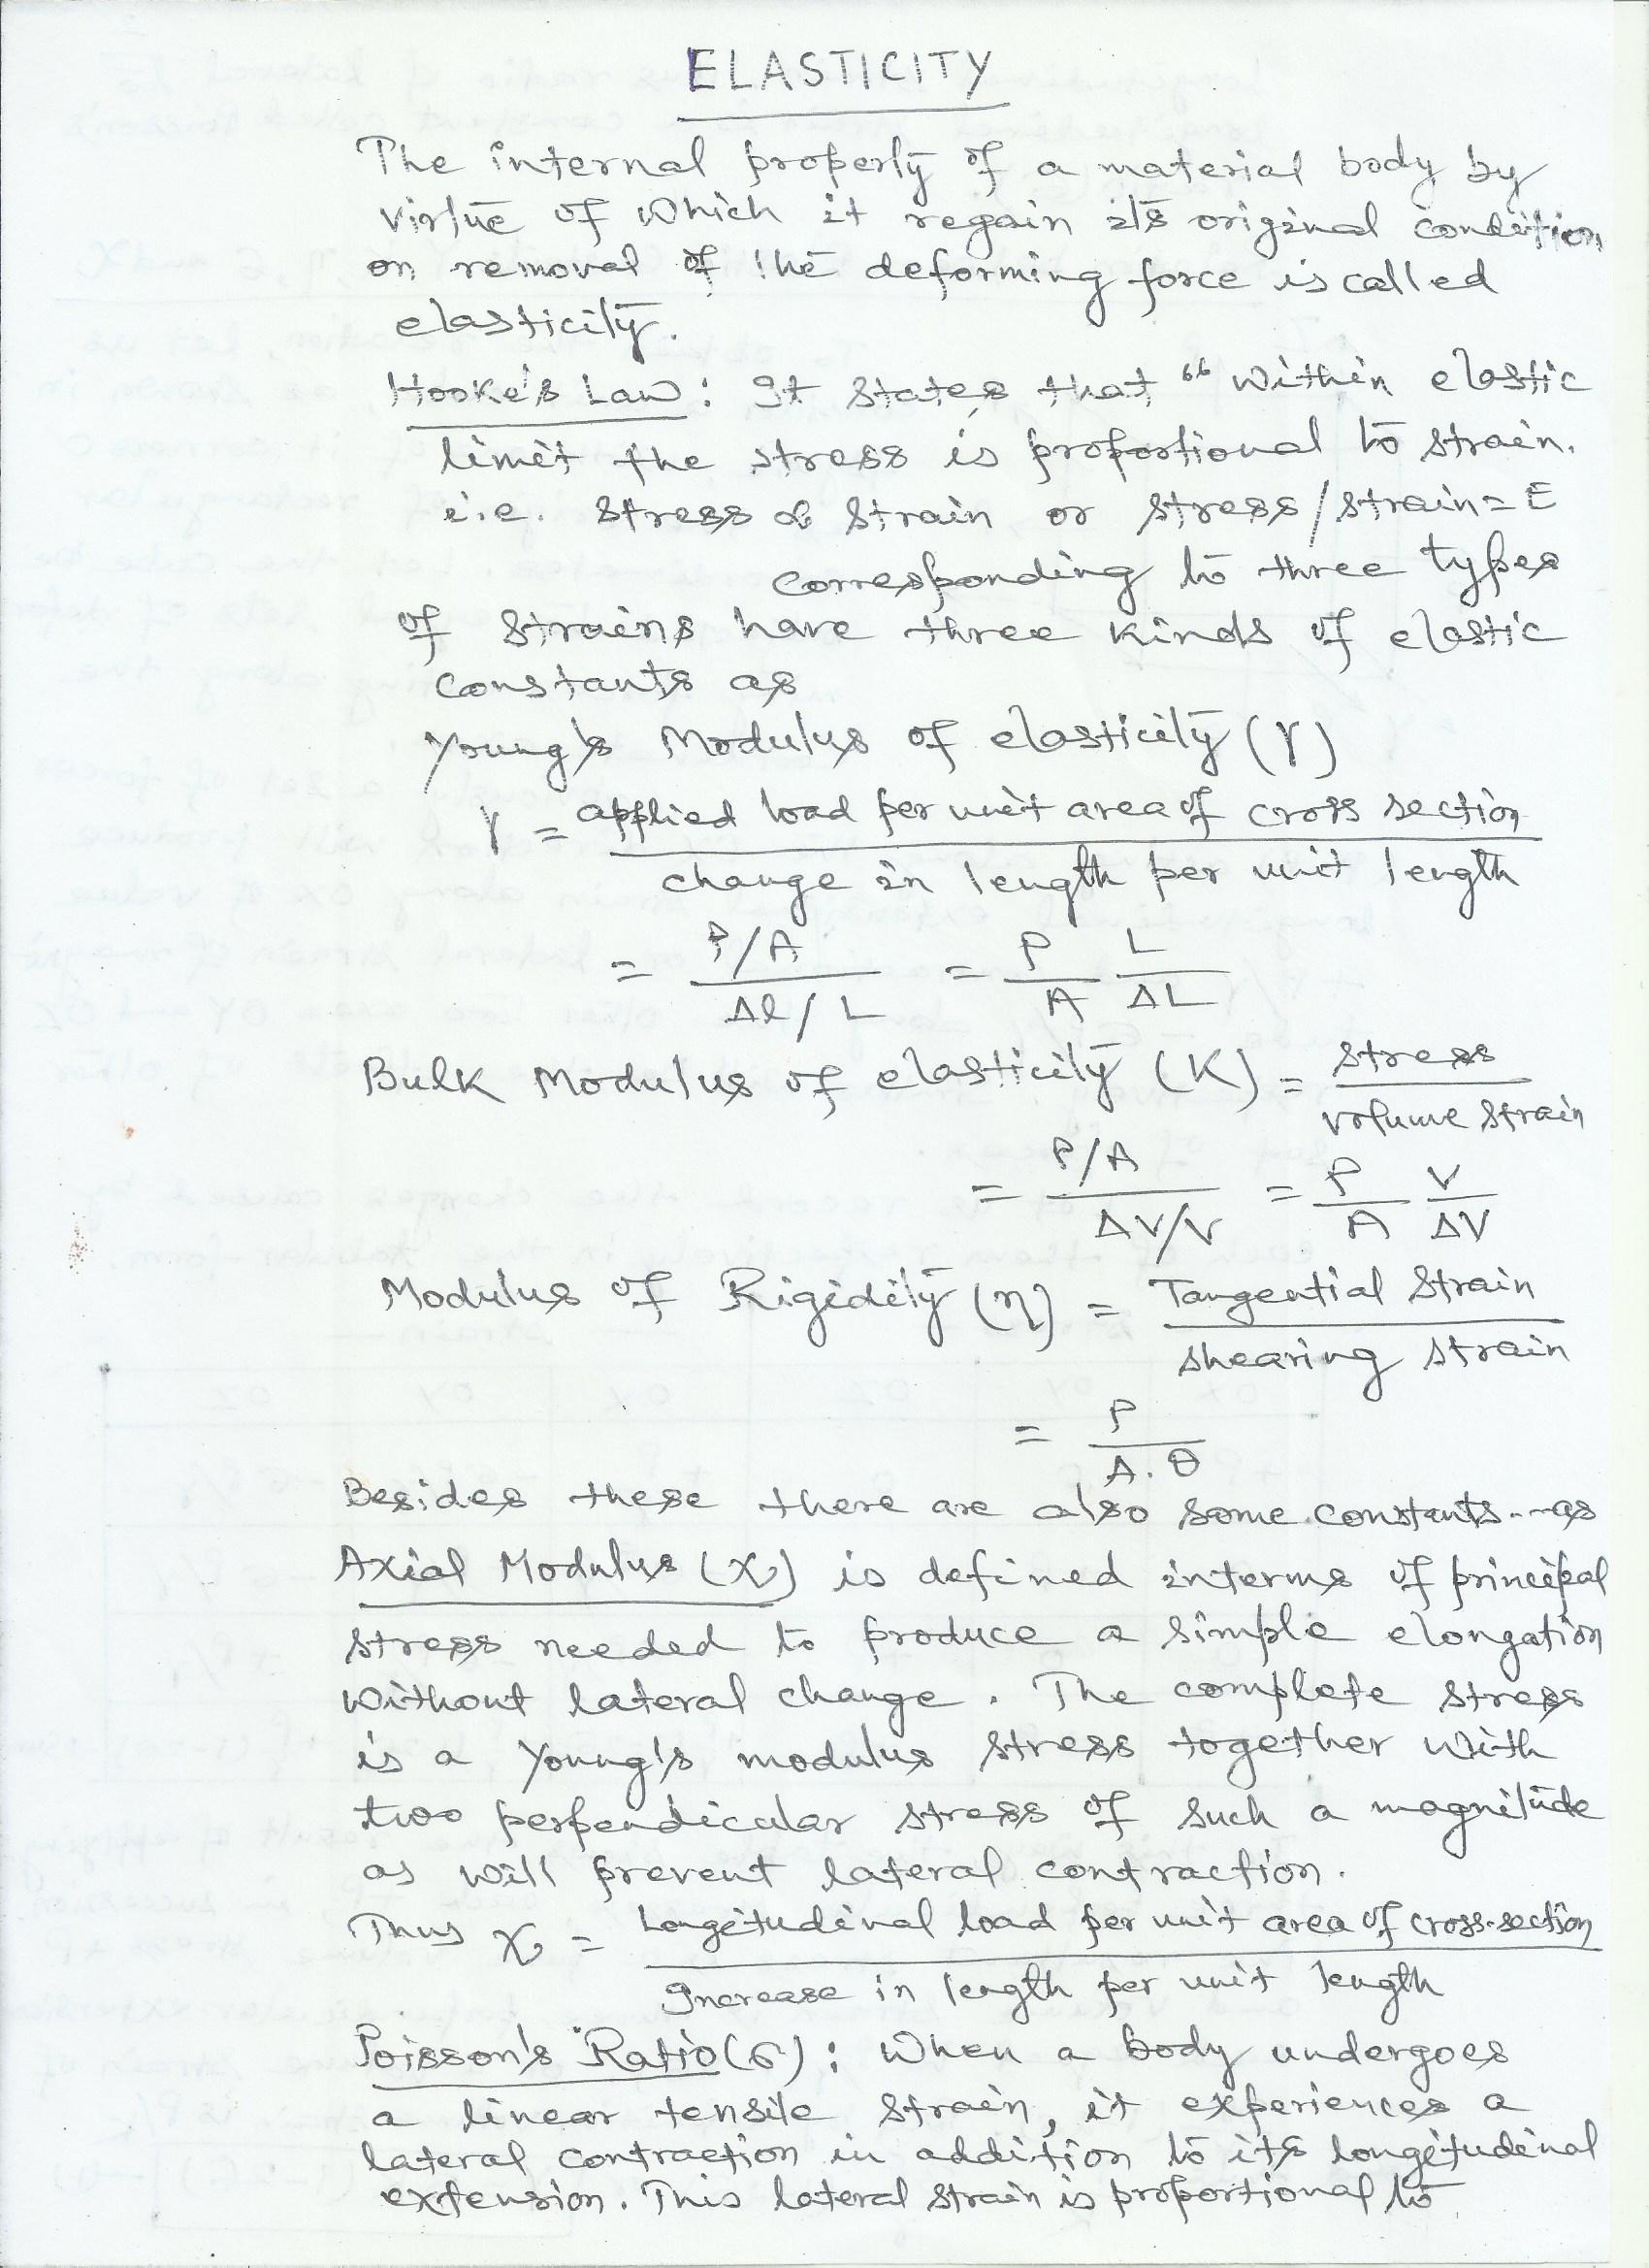 ELASTICITY
The internal property of a material body by
virtue of which it regain its original condition
on removal of the deforming force is called
elasticity.
Hooke's Law : It states that “ within elastic
limit the stress is proportional to strain.
i.e. stress ∝ strain or stress/strain = E
corresponding to three types
of strains have three kinds of elastic
constants as
Young's Modulus of elasticity (Y)
Y = applied load per unit area of cross section
change in length per unit length
= P/A = P L
Δl/L A ΔL
Bulk Modulus of elasticity (K) = stress
volume strain
= P/A = P V
ΔV/V A ΔV
Modulus of Rigidity (η) = Tangential strain
shearing strain
= P
A.θ
Besides these there are also some constants as
Axial Modulus (χ) is defined interms of principal
stress needed to produce a simple elongation
without lateral change. The complete stress
is a Young's modulus stress together with
two perpendicular stress of such a magnitude
as will prevent lateral contraction.
Thus χ = Longitudinal load per unit area of cross-section
Increase in length per unit length
Poisson's Ratio (σ) : When a body undergoes
a linear tensile strain, it experiences a
lateral contraction in addition to its longitudinal
extension. This lateral strain is proportional to